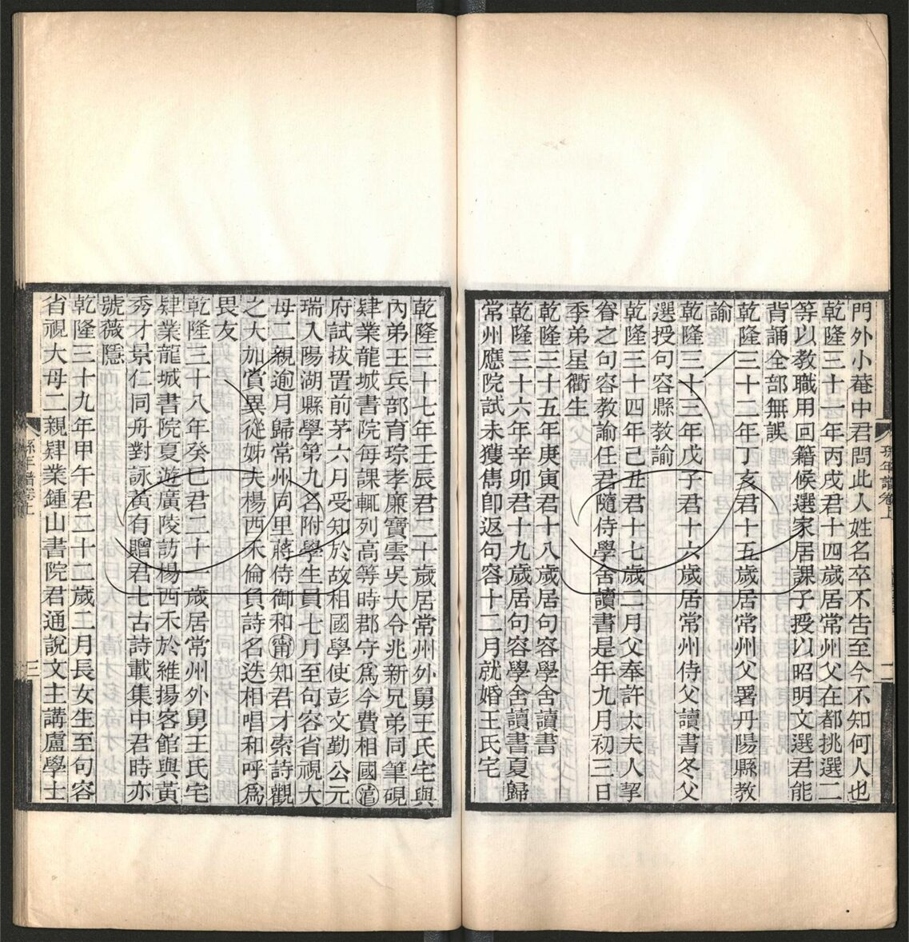 門外小菴中君問此人姓名卒不告至今不知何人也
乾隆三十一年丙戌君十四歲居常州父在都挑選二
等以教職用回籍候選家居課子授以昭明文選君能
背誦全部無誤
乾隆三十二年丁亥君十五歲居常州父署丹陽縣教
諭
乾隆三十三年戊子君十六歲居常州侍父讀書冬父
選授句容縣教諭
乾隆三十四年己丑君十七歲二月父奉許太夫人挈
眷之句容教諭任君隨侍學舍讀書是年九月初三日
季弟星衢生
乾隆三十五年庚寅君十八歲居句容學舍讀書
乾隆三十六年辛卯君十九歲居句容學舍讀書夏歸
常州應院試未獲雋卽返句容十二月就婚王氏宅
孫年譜卷上
二
乾隆三十七年壬辰君二十歲居常州外舅王氏宅與
內弟王兵部育琮孝廉寶雲吳大令兆新兄弟同筆硯
肄業龍城書院每課輒列高等時郡守爲今費相國淳
府試拔置前茅六月受知於故相國學使彭文勤公元
瑞入陽湖縣學第九名附學生員七月至句容省視大
母二親逾月歸常州同里蔣侍御和甯知君才索詩觀
之大加賞異從姊夫楊西禾倫負詩名迭相唱和呼爲
畏友
乾隆三十八年癸巳君二十一歲居常州外舅王氏宅
肄業龍城書院夏遊廣陵訪楊西禾於維揚客館與黃
秀才景仁同舟對詠黃有贈君七古詩載集中君時亦
號薇隱
乾隆三十九年甲午君二十二歲二月長女生至句容
省視大母二親肄業鍾山書院君通說文主講盧學士
孫年譜卷上
三